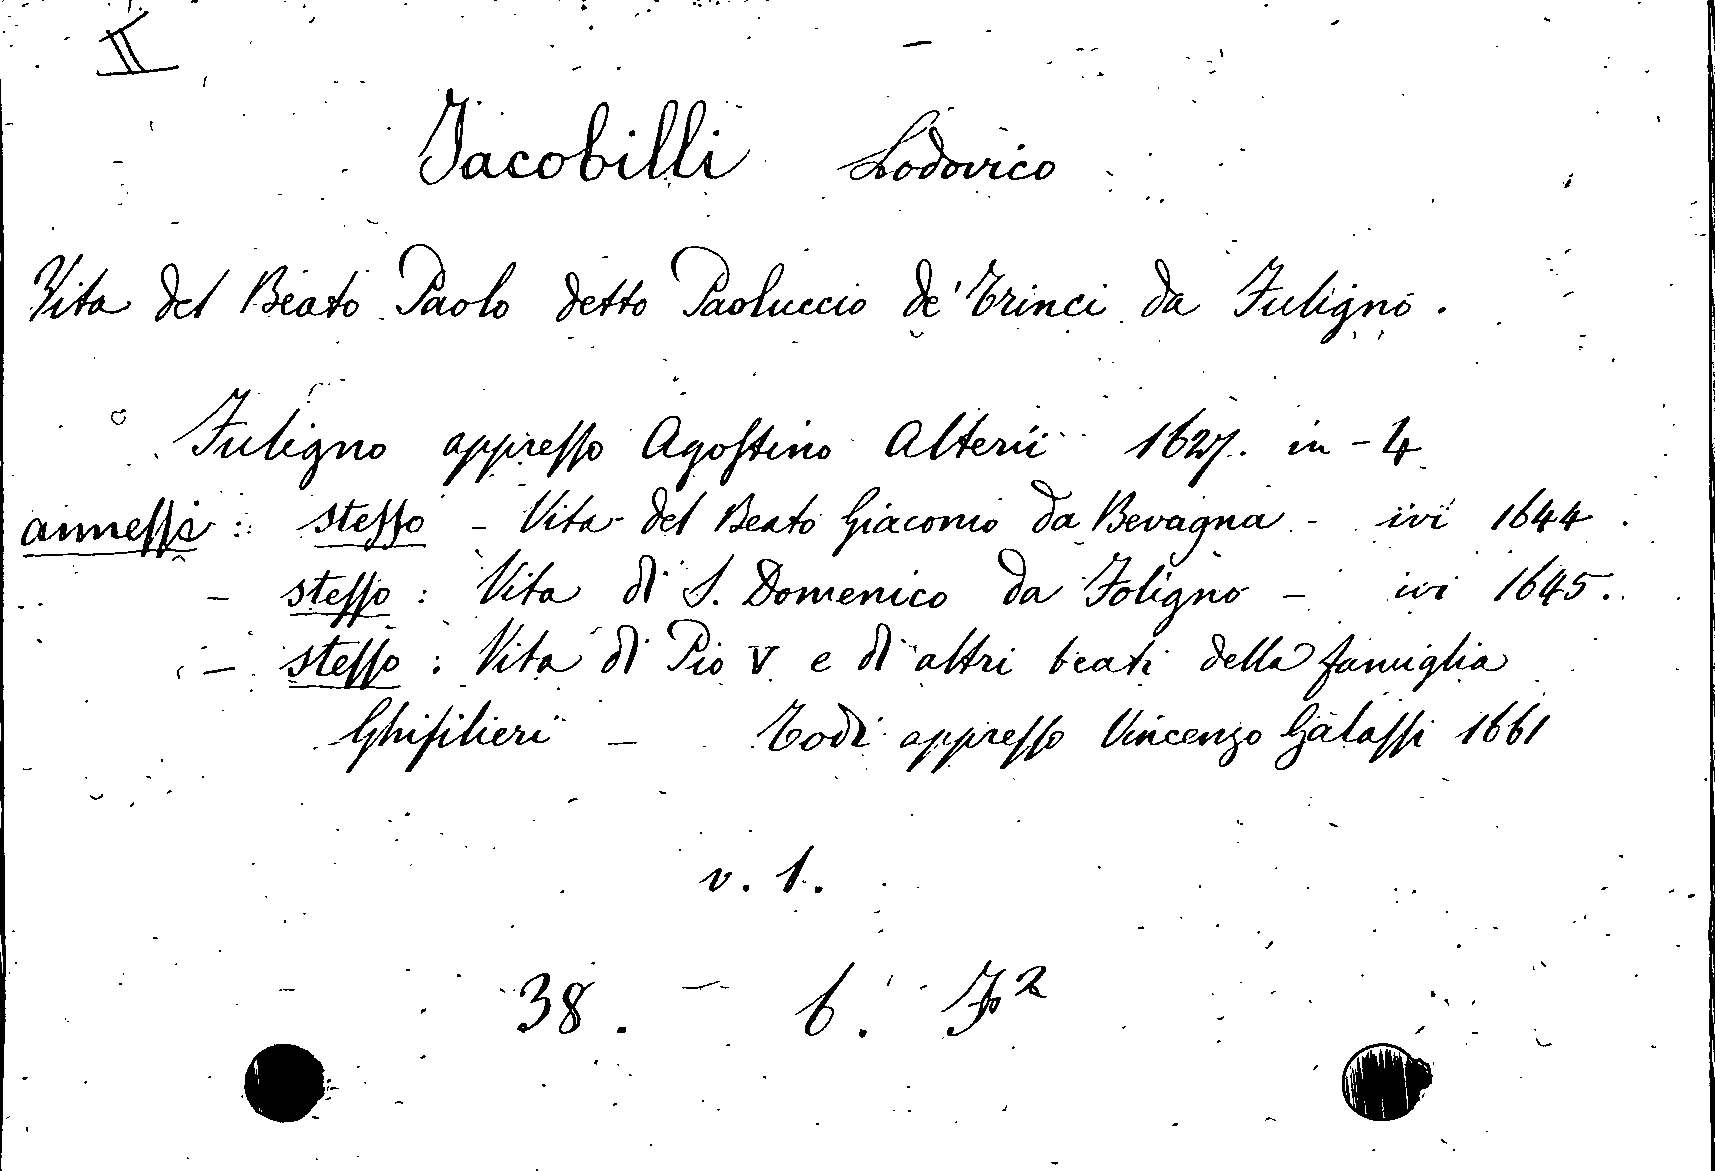 II
Jacobilli Lodovico
Vita del Beato Paolo detto Paoluccio de' Trinci da Fuligno.
Fuligno appresso Agostino Alterii 1627. in-4
annessi: stesso - Vita del Beato Giacomo da Bevagna - ivi 1644.
- stesso: Vita di S. Domenico da Foligno - ivi 1645.
- stesso: Vita di Pio V e di altri beati della famiglia
Ghisilieri - Todi appresso Vincenzo Galassi 1661
v. 1.
38. - 6. F²